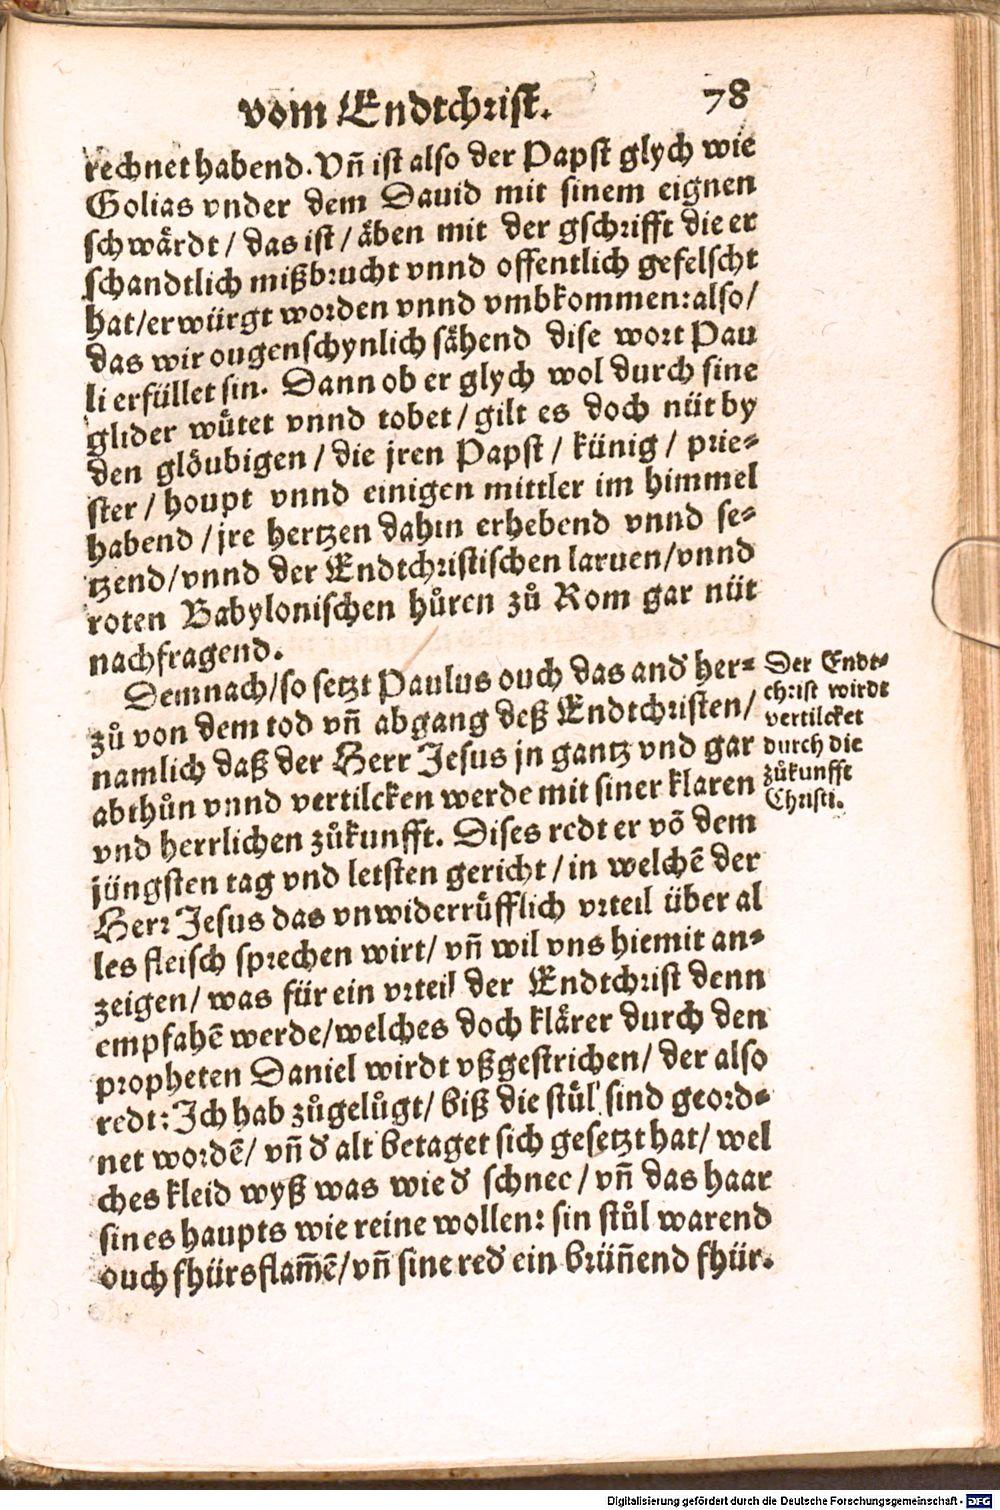 vom Endtchrist. 78
rechnet habend. Vñ ist also der Papst glych wie
Golias vnder dem Dauid mit sinem eignen
schwårdt / das ist / åben mit der gschrifft die er
schandtlich mißbrucht vnnd offentlich gefelscht
hat / erwürgt worden vnnd vmbkommen: also /
das wir ougenschynlich såhend dise wort Pau
li erfüllet sin. Dann ob er glych wol durch sine
glider wůtet vnnd tobet / gilt es doch nüt by
den glöubigen / die jren Papst / künig / prie⸗
ster / houpt vnnd einigen mittler im himmel
habend / jre hertzen dahin erhebend vnnd se⸗
tzend / vnnd der Endtchristischen laruen / vnnd
roten Babylonischen hůren zů Rom gar nüt
nachfragend.
Demnach / so setzt Paulus ouch das and᷑ her⸗
zů von dem tod vñ abgang deß Endtchristen /
namlich daß der Herr Jesus jn gantz vnd gar
abthůn vnnd vertilcken werde mit siner klaren
vnd herrlichen zůkunfft. Dises redt er võ dem
jüngsten tag vnd letsten gericht / in welchẽ der
Herr Jesus das vnwiderrůfflich vrteil über al
les fleisch sprechen wirt / vñ wil vns hiemit an⸗
zeigen / was für ein vrteil der Endtchrist denn
empfahẽ werde / welches doch klårer durch den
propheten Daniel wirdt vßgestrichen / der also
redt: Ich hab zůgelůgt / biß die stůl sind geord⸗
net wordẽ / vñ d᷑ alt betaget sich gesetzt hat / wel
ches kleid wyß was wie d᷑ schnee / vñ das haar
sines haupts wie reine wollen: sin stůl warend
ouch fhürsflam̃ẽ / vñ sine red᷑ ein brüñend fhür.
Der Endt⸗
christ wirdt
vertilcket
durch die
zůkunfft
Christi.
Digitalisierung gefördert durch die Deutsche Forschungsgemeinschaft - DFG